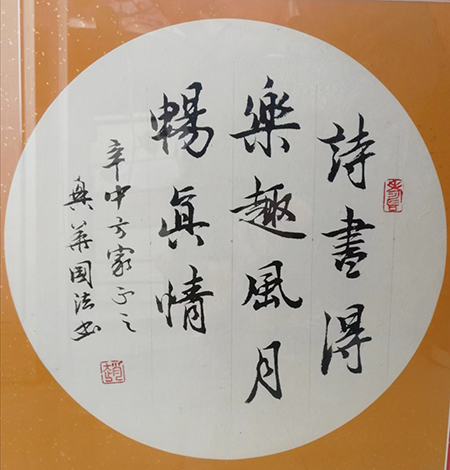 詩書得
樂趣風月
暢真情
辛中方家正之
典華國法書